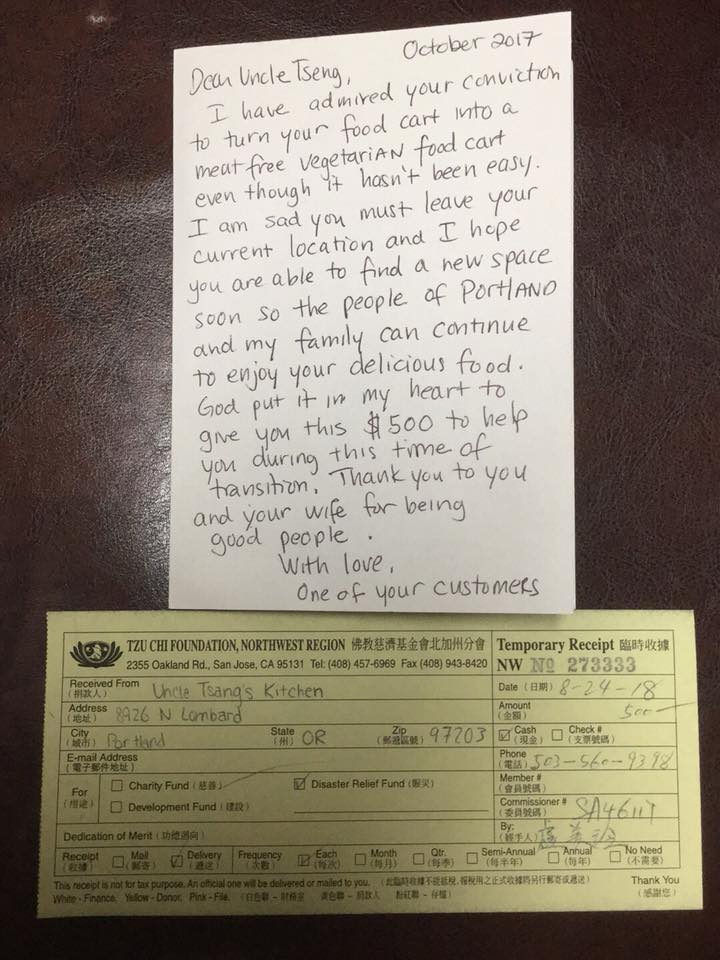 October 2017
Dear Uncle Tseng,
I have admired your conviction
to turn your food cart into a
meat free vegetariAN food cart
even though it hasn't been easy.
I am sad you must leave your
current location and I hope
you are able to find a new space
soon so the people of PORtLAND
and my family can continue
to enjoy your delicious food.
God put it in my heart to
give you this $500 to help
you during this time of
transition. Thank you to you
and your wife for being
good people.
With love,
One of your customers
TZU CHI FOUNDATION, NORTHWEST REGION 佛教慈濟基金會北加州分會
2355 Oakland Rd., San Jose, CA 95131 Tel: (408) 457-6969 Fax (408) 943-8420
Temporary Receipt 臨時收據
NW No 273333
Received From Uncle Tsang's Kitchen
(捐款人)
Date (日期) 8-24-18
Address 8926 N Lombard
(地址)
Amount 500
(金額)
City Portland State OR Zip 97203
(城市) (州) (郵遞區號)
Cash Check #
(現金) (支票號碼)
E-mail Address
(電子郵件地址)
Phone 503-560-9398
(電話)
For Charity Fund (慈善) Disaster Relief Fund (賑災)
(用途) Development Fund (建設)
Member #
(會員號碼)
Commissioner # SA46117
(委員號碼)
Dedication of Merit (功德迴向)
By:
(經手人)
Receipt Mail Delivery Frequency Each Month Qtr. Semi-Annual Annual No Need
(收據) (郵寄) (遞送) (次數) (每次) (每月) (每季) (每半年) (每年) (不需要)
This receipt is not for tax purpose. An official one will be delivered or mailed to you. (此臨時收據不能抵稅，報稅用之正式收據將另行郵寄或遞送)
Thank You
White - Finance, Yellow - Donor, Pink - File. (白色聯 - 財務室 黃色聯 - 捐款人 粉紅聯 - 存檔)
(感謝您)